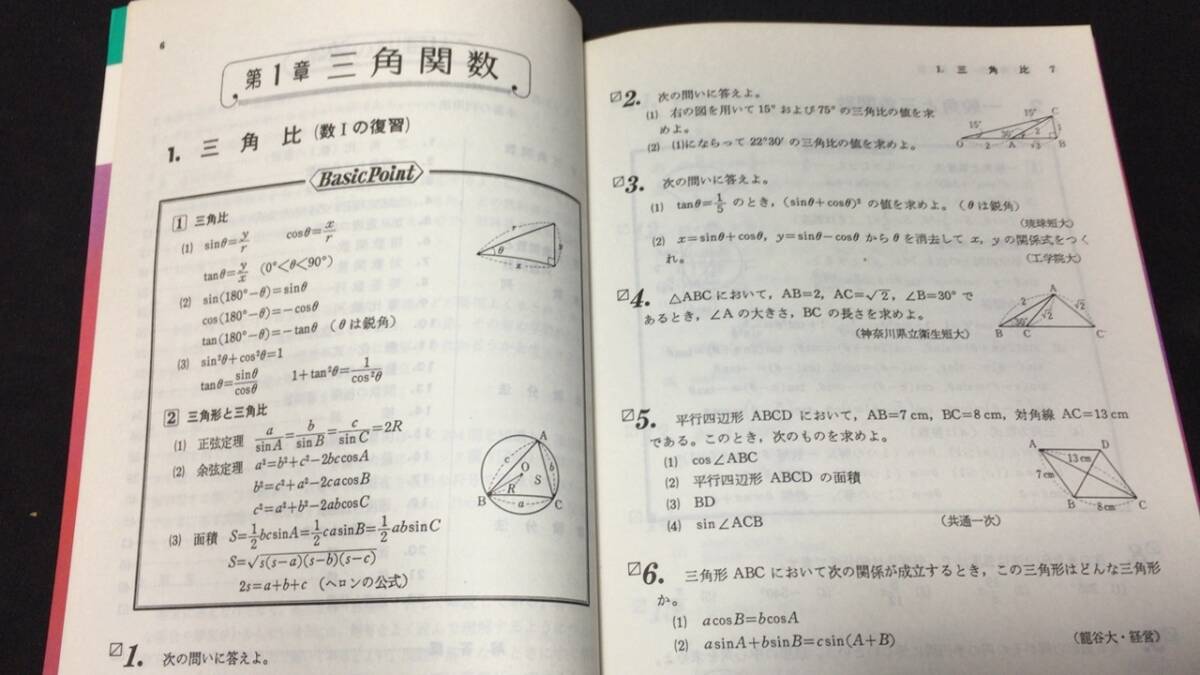 6
第1章 三角関数
1. 三角比 (数Iの復習)
BasicPoint
1 三角比
(1) sinθ=y/r cosθ=x/r
tanθ=y/x (0°<θ<90°)
r
y
θ
x
(2) sin(180°-θ)=sinθ
cos(180°-θ)=-cosθ
tan(180°-θ)=-tanθ (θは鋭角)
(3) sin²θ+cos²θ=1
tanθ=sinθ/cosθ 1+tan²θ=1/cos²θ
2 三角形と三角比
(1) 正弦定理 a/sinA=b/sinB=c/sinC=2R
(2) 余弦定理 a²=b²+c²-2bccosA
b²=c²+a²-2cacosB
c²=a²+b²-2abcosC
(3) 面積 S=1/2bcsinA=1/2casinB=1/2absinC
S=√s(s-a)(s-b)(s-c)
2s=a+b+c (ヘロンの公式)
A
c
O
b
S
R
B
a
C
1. 次の問いに答えよ。
1. 三角比 7
2. 次の問いに答えよ。
(1) 右の図を用いて15°および75°の三角比の値を求
めよ。
(2) (1)にならって22°30′の三角比の値を求めよ。
C
15°
15°
30°
2
1
O
2
A
√3
B
3. 次の問いに答えよ。
(1) tanθ=1/5 のとき，(sinθ+cosθ)² の値を求めよ。(θは鋭角)
(琉球短大)
(2) x=sinθ+cosθ，y=sinθ-cosθ からθを消去して x，y の関係式をつく
れ。
(工学院大)
4. △ABC において，AB=2，AC=√2，∠B=30° で
あるとき，∠A の大きさ，BC の長さを求めよ。
(神奈川県立衛生短大)
A
2
√2
√2
30°
B
C
C′
5. 平行四辺形 ABCD において，AB=7 cm，BC=8 cm，対角線 AC=13 cm
である。このとき，次のものを求めよ。
(1) cos∠ABC
(2) 平行四辺形 ABCD の面積
(3) BD
(4) sin∠ACB
(共通一次)
A
D
13cm
7cm
B
8cm
C
6. 三角形 ABC において次の関係が成立するとき，この三角形はどんな三角形
か。
(1) acosB=bcosA
(2) asinA+bsinB=csin(A+B)
(龍谷大・経営)